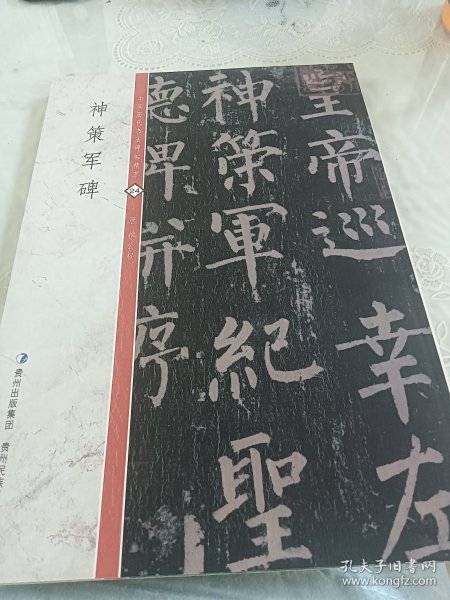 皇帝巡幸左
神策軍紀聖
德碑并序
24
唐 柳公权
神策军碑
贵州出版集团
贵州民族
孔夫子旧书网
www.kongfz.com